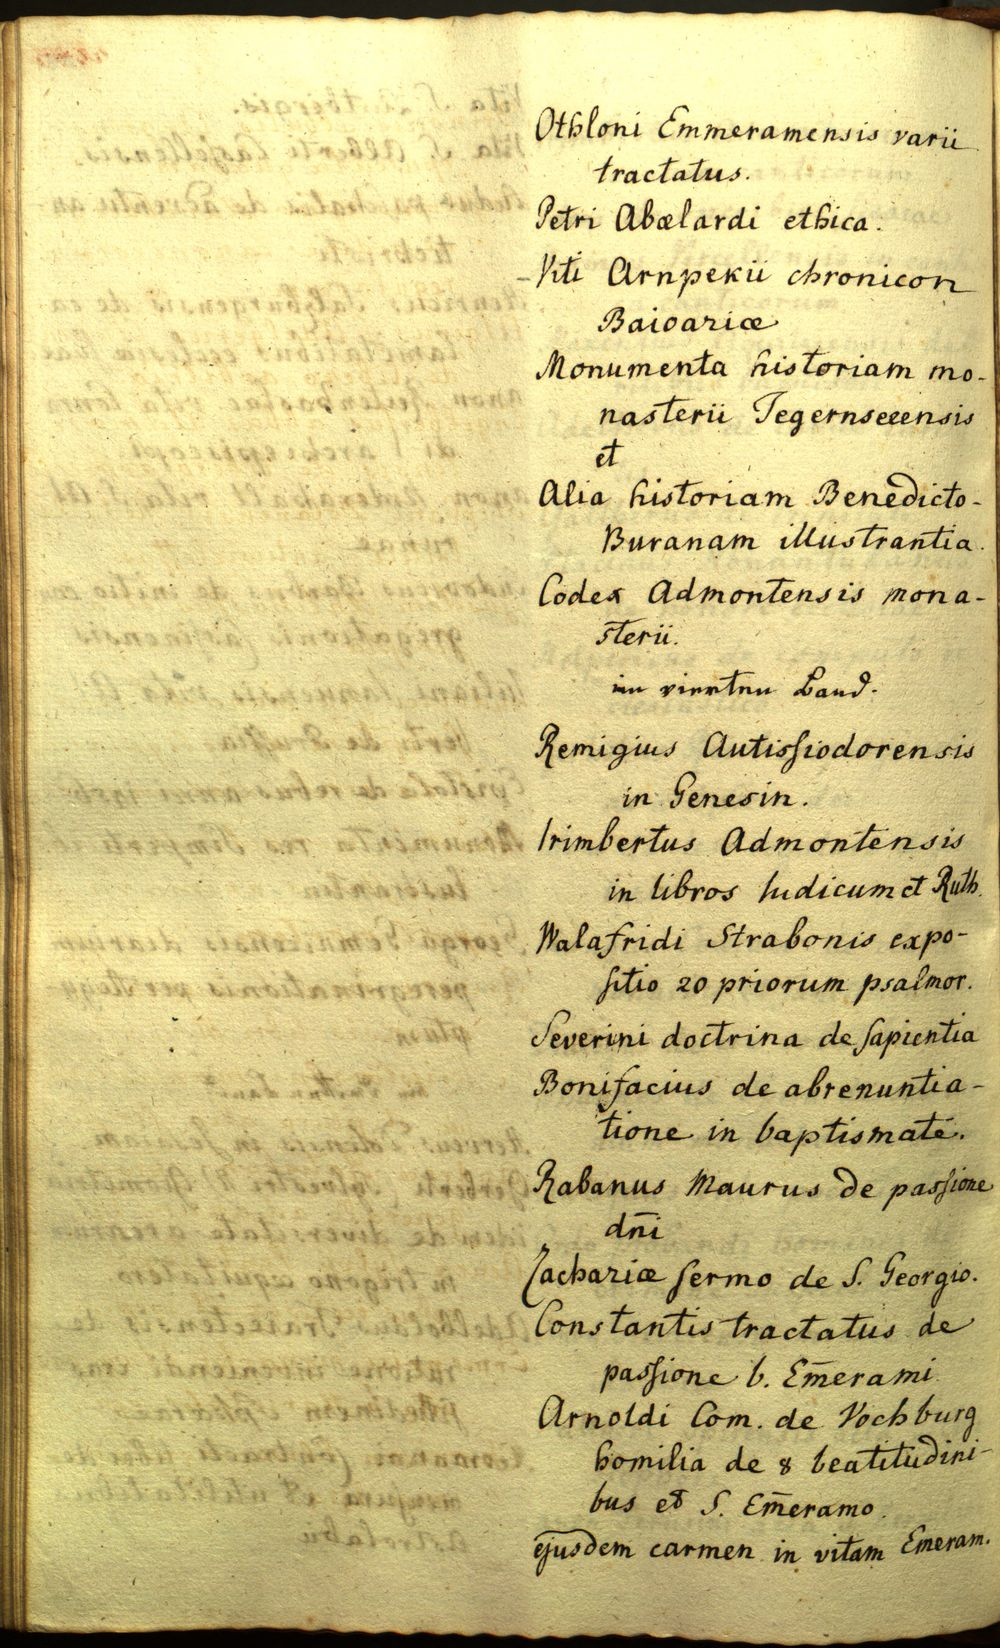 Othloni Emmeramensis varii
tractatus.
Petri Abælardi ethica.
Viti Arnpekii chronicon
Baioariæ
Monumenta historiam mo-
nasterii Tegernseeensis
et
Alia historiam Benedicto-
Buranam illustrantia.
Codex Admontensis mona-
sterii.
im vierten Band.
Remigius Autissiodorensis
in Genesin.
Irimbertus Admontensis
in libros Iudicum et Ruth.
Walafridi Strabonis expo-
sitio 20 priorum psalmor.
Severini doctrina de sapientia
Bonifacius de abrenuntia-
tione in baptismate.
Rabanus Maurus de passione
dn̄i
Zachariæ sermo de S. Georgio.
Constantis tractatus de
passione b. Em̄erami
Arnoldi Com. de Vochburg
homilia de 8 beatitudini-
bus et S. Em̄eramo.
ejusdem carmen in vitam Emeram.